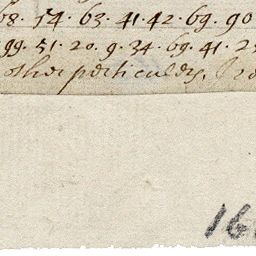 68. 54. 63. 41. 42. 69. 90
99. 51. 20. 9. 34. 69. 41. 2
other perticulers. I
16